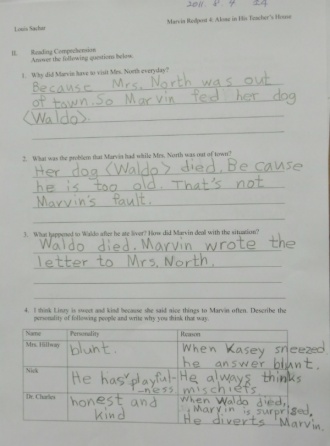 2011. 8. 4
Louis Sachar
Marvin Redpost 4: Alone in His Teacher's House
II. Reading Comprehension
Answer the following questions below.
1. Why did Marvin have to visit Mrs. North everyday?
Because Mrs. North was out
of town. So Marvin fed her dog
<Waldo>.
2. What was the problem that Marvin had while Mrs. North was out of town?
Her dog <Waldo> died. Be cause
he is too old. That's not
Marvin's fault.
3. What happened to Waldo after he ate liver? How did Marvin deal with the situation?
Waldo died. Marvin wrote the
letter to Mrs. North.
4. I think Linzy is sweet and kind because she said nice things to Marvin often. Describe the
personality of following people and write why you think that way.
Name Personality Reason
Mrs. Hillway blunt. When Kasey sneezed
he answer blunt.
Nick He has playful- He always thinks
ness mischiefs
Dr. Charles honest and When Waldo died,
kind Marvin is surprised,
He diverts Marvin.